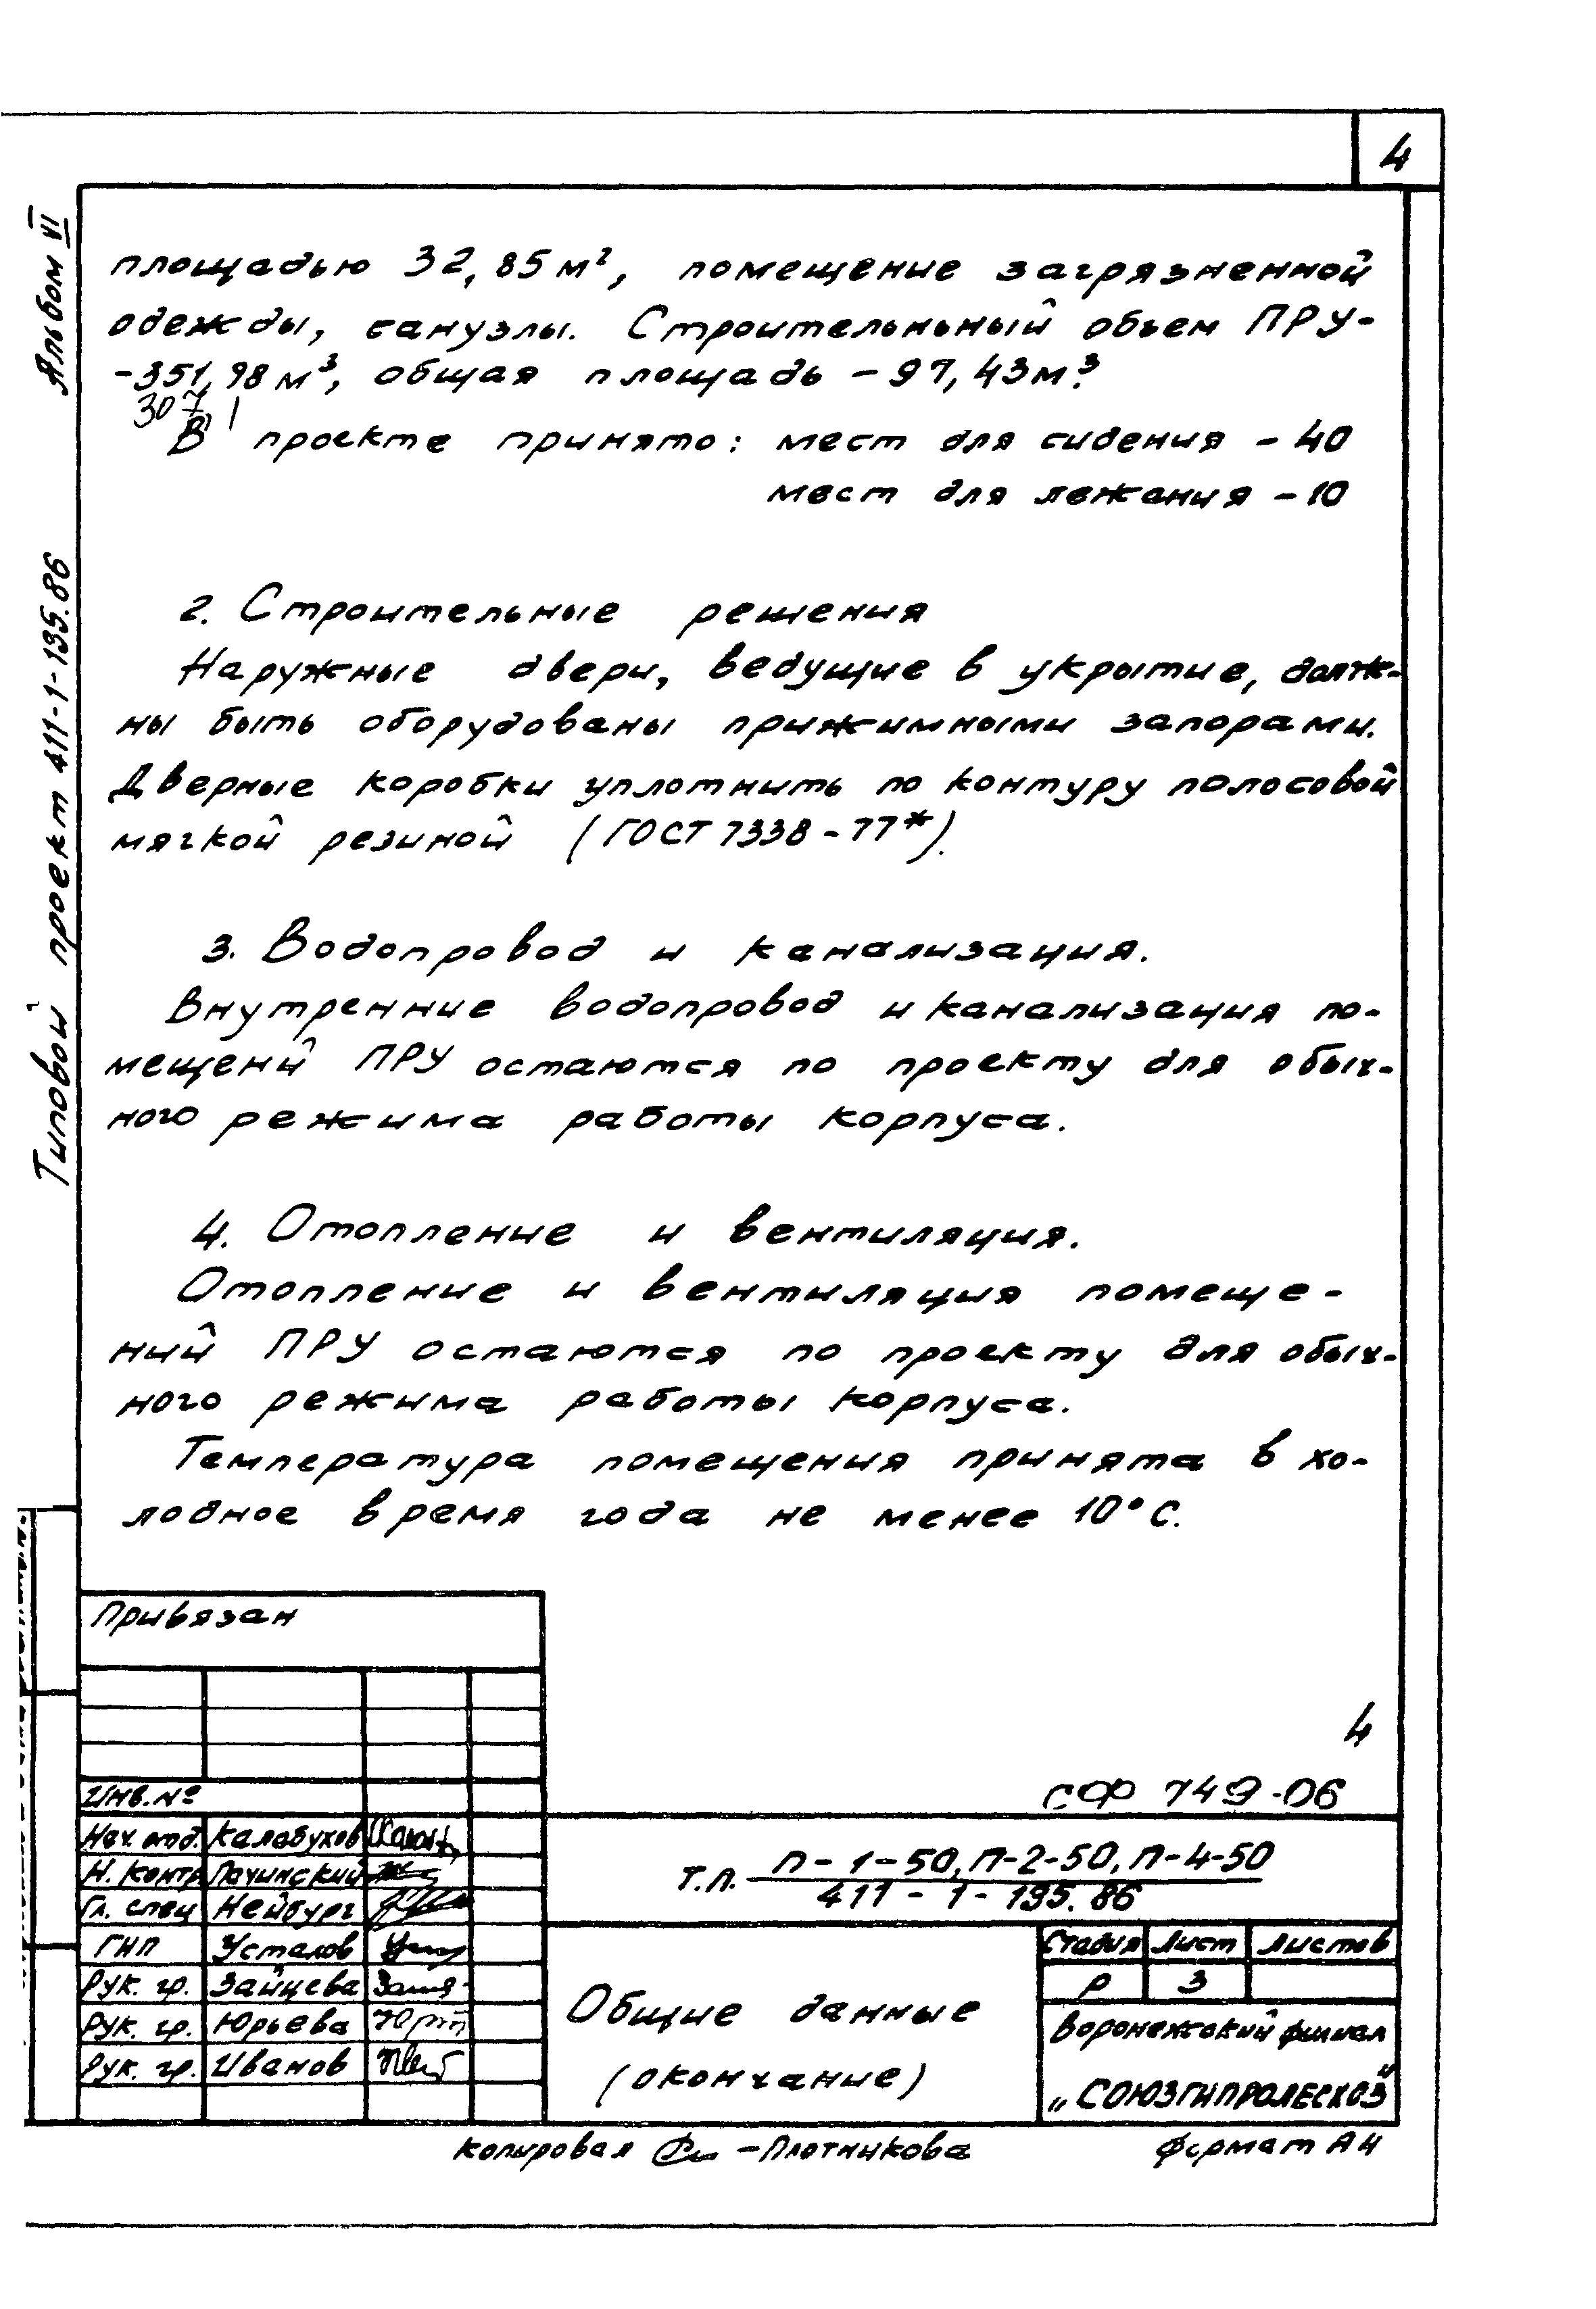 4
Альбом VI
Типовой проект 411-1-135.86
площадью 32,85 м², помещение загрязненной
одежды, санузлы. Строительньный объем ПРУ-
-351,98 м³, общая площадь - 97,43м³.
307,1
В проекте принято: мест для сидения - 40
мест для лежания - 10
2. Строительные решения
Наружные двери, ведущие в укрытие, долж-
ны быть оборудованы прижимными запорами.
Дверные коробки уплотнить по контуру полосовой
мягкой резиной (ГОСТ 7338-77*).
3. Водопровод и канализация.
Внутренние водопровод и канализация по-
мещений ПРУ остаются по проекту для обыч-
ного режима работы корпуса.
4. Отопление и вентиляция.
Отопление и вентиляция помеще-
ний ПРУ остаются по проекту для обыч-
ного режима работы корпуса.
Температура помещения принята в хо-
лодное время года не менее 10°С.
Привязан
Инв. №
4
СФ 749-06
Нач. отд. Калабухов
Н. контр Пачинский
Гл. спец Нейбург
ГИП Усталов
Рук. гр. Зайцева
Рук. гр. Юрьева
Рук. гр. Иванов
Т.П. П-1-50, П-2-50, П-4-50
411-1-135.86
Общие данные
(окончание)
Стадия Лист Листов
Р 3
Воронежский филиал
„СОЮЗГИПРОЛЕСХОЗ"
Копировал - Плотникова
Формат А4